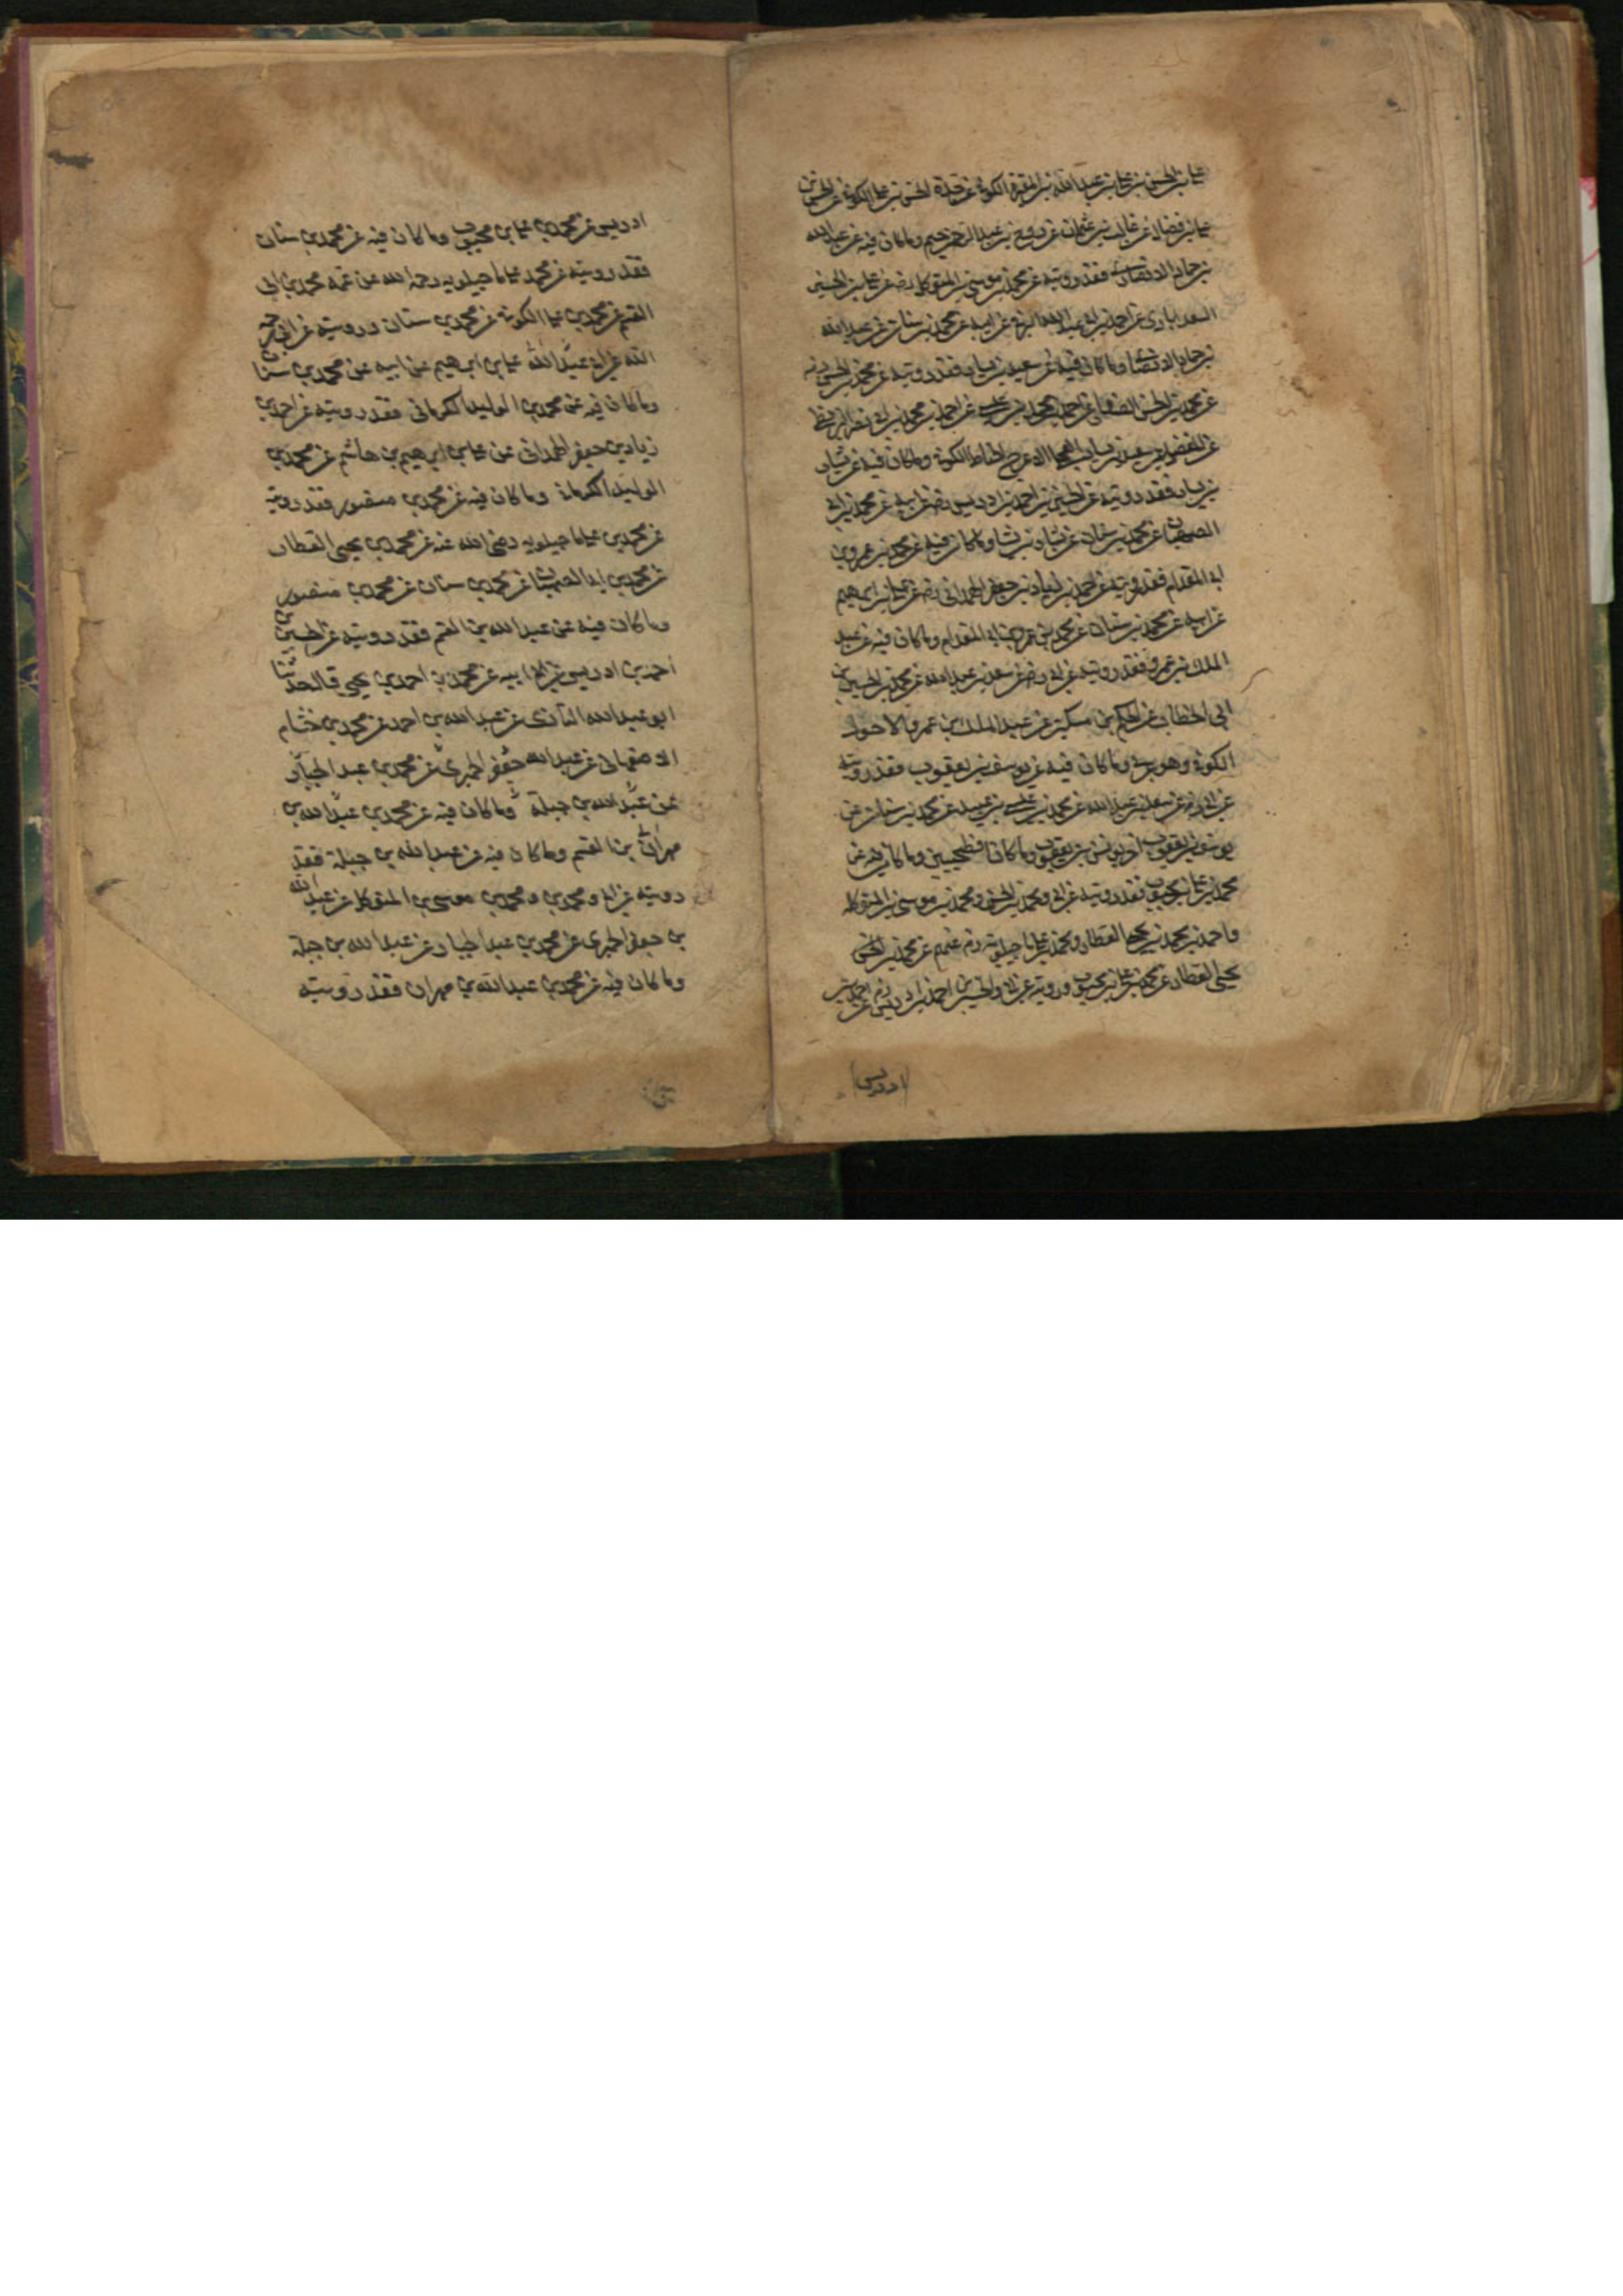 علي بن الحسن بن علي بن عبد الله بن المغيرة الكوفي عن جده الحسن بن علي الكوفي عن الحسين بن
علي بن فضال عن غالب بن عثمان عن روح بن عبد الرحيم وما كان فيه عن عبد الله
بن حماد الانصاري فقد رويته عن محمد بن موسى بن المتوكل رض عن علي بن الحسين
السعدابادي عن احمد بن ابي عبد الله البرقي عن ابيه عن محمد بن سنان عن عبد الله
بن حماد الانصاري وما كان فيه عن سعيد بن يسار فقد رويته عن محمد بن الحسن رض
عن محمد بن الحسن الصفار عن احمد بن محمد بن عيسى عن احمد بن محمد بن ابي نصر البزنطي
عن المفضل عن سعيد بن يسار العجلي الاعرج الحناط الكوفي وما كان فيه عن بشار
بن يسار فقد رويته عن الحسين بن احمد بن ادريس رض عن ابيه عن محمد بن ابي
الصهبان عن محمد بن سنان عن بشار بن بشار وما كان فيه عن محمد بن عمرو بن
ابي المقدام فقد رويته عن احمد بن زياد بن جعفر الهمداني رض عن علي بن ابرهيم
عن ابيه عن محمد بن سنان عن محمد بن عمرو بن ابي المقدام وما كان فيه عن عبد
الملك بن عمرو فقد رويته عن ابي رض عن سعد بن عبد الله عن محمد بن الحسين بن
ابي الخطاب عن الحكم بن مسكين عن عبد الملك بن عمرو الاحول
الكوفي وهو عربي وما كان فيه عن يوسف بن يعقوب فقد رويته
عن ابي رض عن سعد بن عبد الله عن محمد بن عيسى بن عبيد عن محمد بن سنان عن
يوسف بن يعقوب اخي يونس بن يعقوب وكانا فطحيين وما كان فيه عن
محمد بن علي بن محبوب فقد رويته عن ابي ومحمد بن الحسن ومحمد بن موسى بن المتوكل
واحمد بن محمد بن يحيى العطار ومحمد بن علي ماجيلويه رض عنهم عن محمد بن
يحيى العطار عن محمد بن علي بن محبوب ورويته عن ابي والحسين بن احمد بن ادريس رض عن احمد بن
ادريس
ادريس عن محمد بن علي بن محبوب وما كان فيه عن محمد بن سنان
فقد رويته عن محمد علي ماجيلويه رحمه الله عن عمه محمد بن ابي
القسم عن محمد بن علي الكوفي عن محمد بن سنان ورويته عن ابي رحمه
الله عن علي بن ابرهيم عن ابيه عن محمد بن سنان
وما كان فيه عن محمد بن الوليد الكرماني فقد رويته عن احمد بن
زياد بن جعفر الهمداني عن علي بن ابرهيم بن هاشم عن محمد بن
الوليد الكرماني وما كان فيه عن محمد بن منصور فقد رويته
عن محمد بن علي ماجيلويه رضي الله عنه عن محمد بن يحيى العطار
عن محمد بن ابي الصهبان عن محمد بن سنان عن محمد بن منصور
وما كان فيه عن عبد الله بن القسم فقد رويته عن الحسين بن
احمد بن ادريس عن ابيه عن محمد بن احمد بن يحيى قال حدثنا
ابو عبد الله الرازي عن عبد الله بن احمد عن محمد بن خشنام
الاصفهاني عن عبد الله جعفر الحميري عن محمد بن عبد الجبار
عن عبد الله بن جبلة وما كان فيه عن محمد بن عبد الله بن
مهران بن القسم وما كان فيه عن عبد الله بن جبلة فقد
رويته عن ابي ومحمد بن ومحمد بن موسى بن المتوكل عن عبد الله
بن جعفر الحميري عن محمد بن عبد الجبار عن عبد الله بن جبلة
وما كان فيه عن محمد بن عبد الله بن مهران فقد رويته